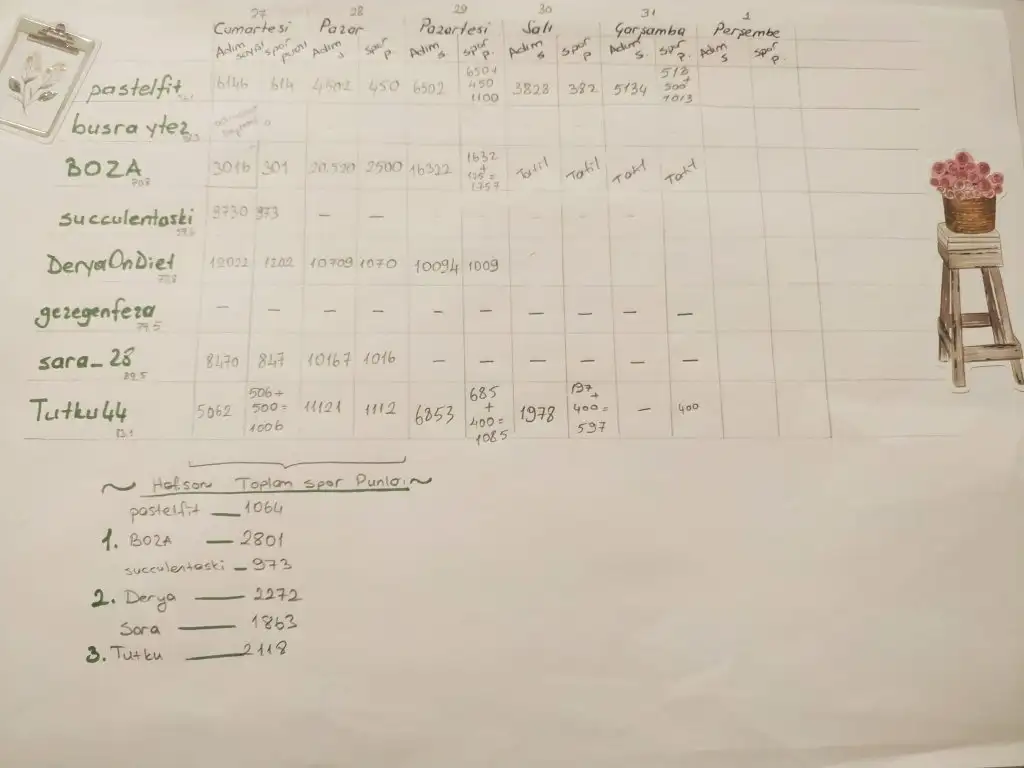 27 28 29 30 31 1
Cumartesi Pazar Pazartesi Salı Çarşamba Perşembe
Adım sayısı spor puanı Adım s spor p. Adım s spor p. Adım s spor p. Adım s. spor p. Adım s spor p.
pastelfit 6146 614 4502 450 6502 650+ 450 1100 3828 382 5134 513 + 500 1013
busra ytez
BOZA 3016 301 20.590 2500 16322 1632 + 125= 1757 Tatil Tatil Tatil Tatil
succulentaski 9730 973 — —
DeryaOnDiet 12022 1202 10709 1070 10094 1009
gezegenfeza — — — — — — — — — —
79.5
sara_28 8470 847 10167 1016 — — — — — —
89.5
Tutku44 5062 506+ 500= 1006 11121 1112 6853 685 + 400= 1085 1978 197 + 400= 597 — 400
~ Hafson Toplam spor Punloı ~
pastelfit — 1064
1. BOZA — 2801
succulentaski — 973
2. Derya — 2272
Sara — 1863
3. Tutku — 2118